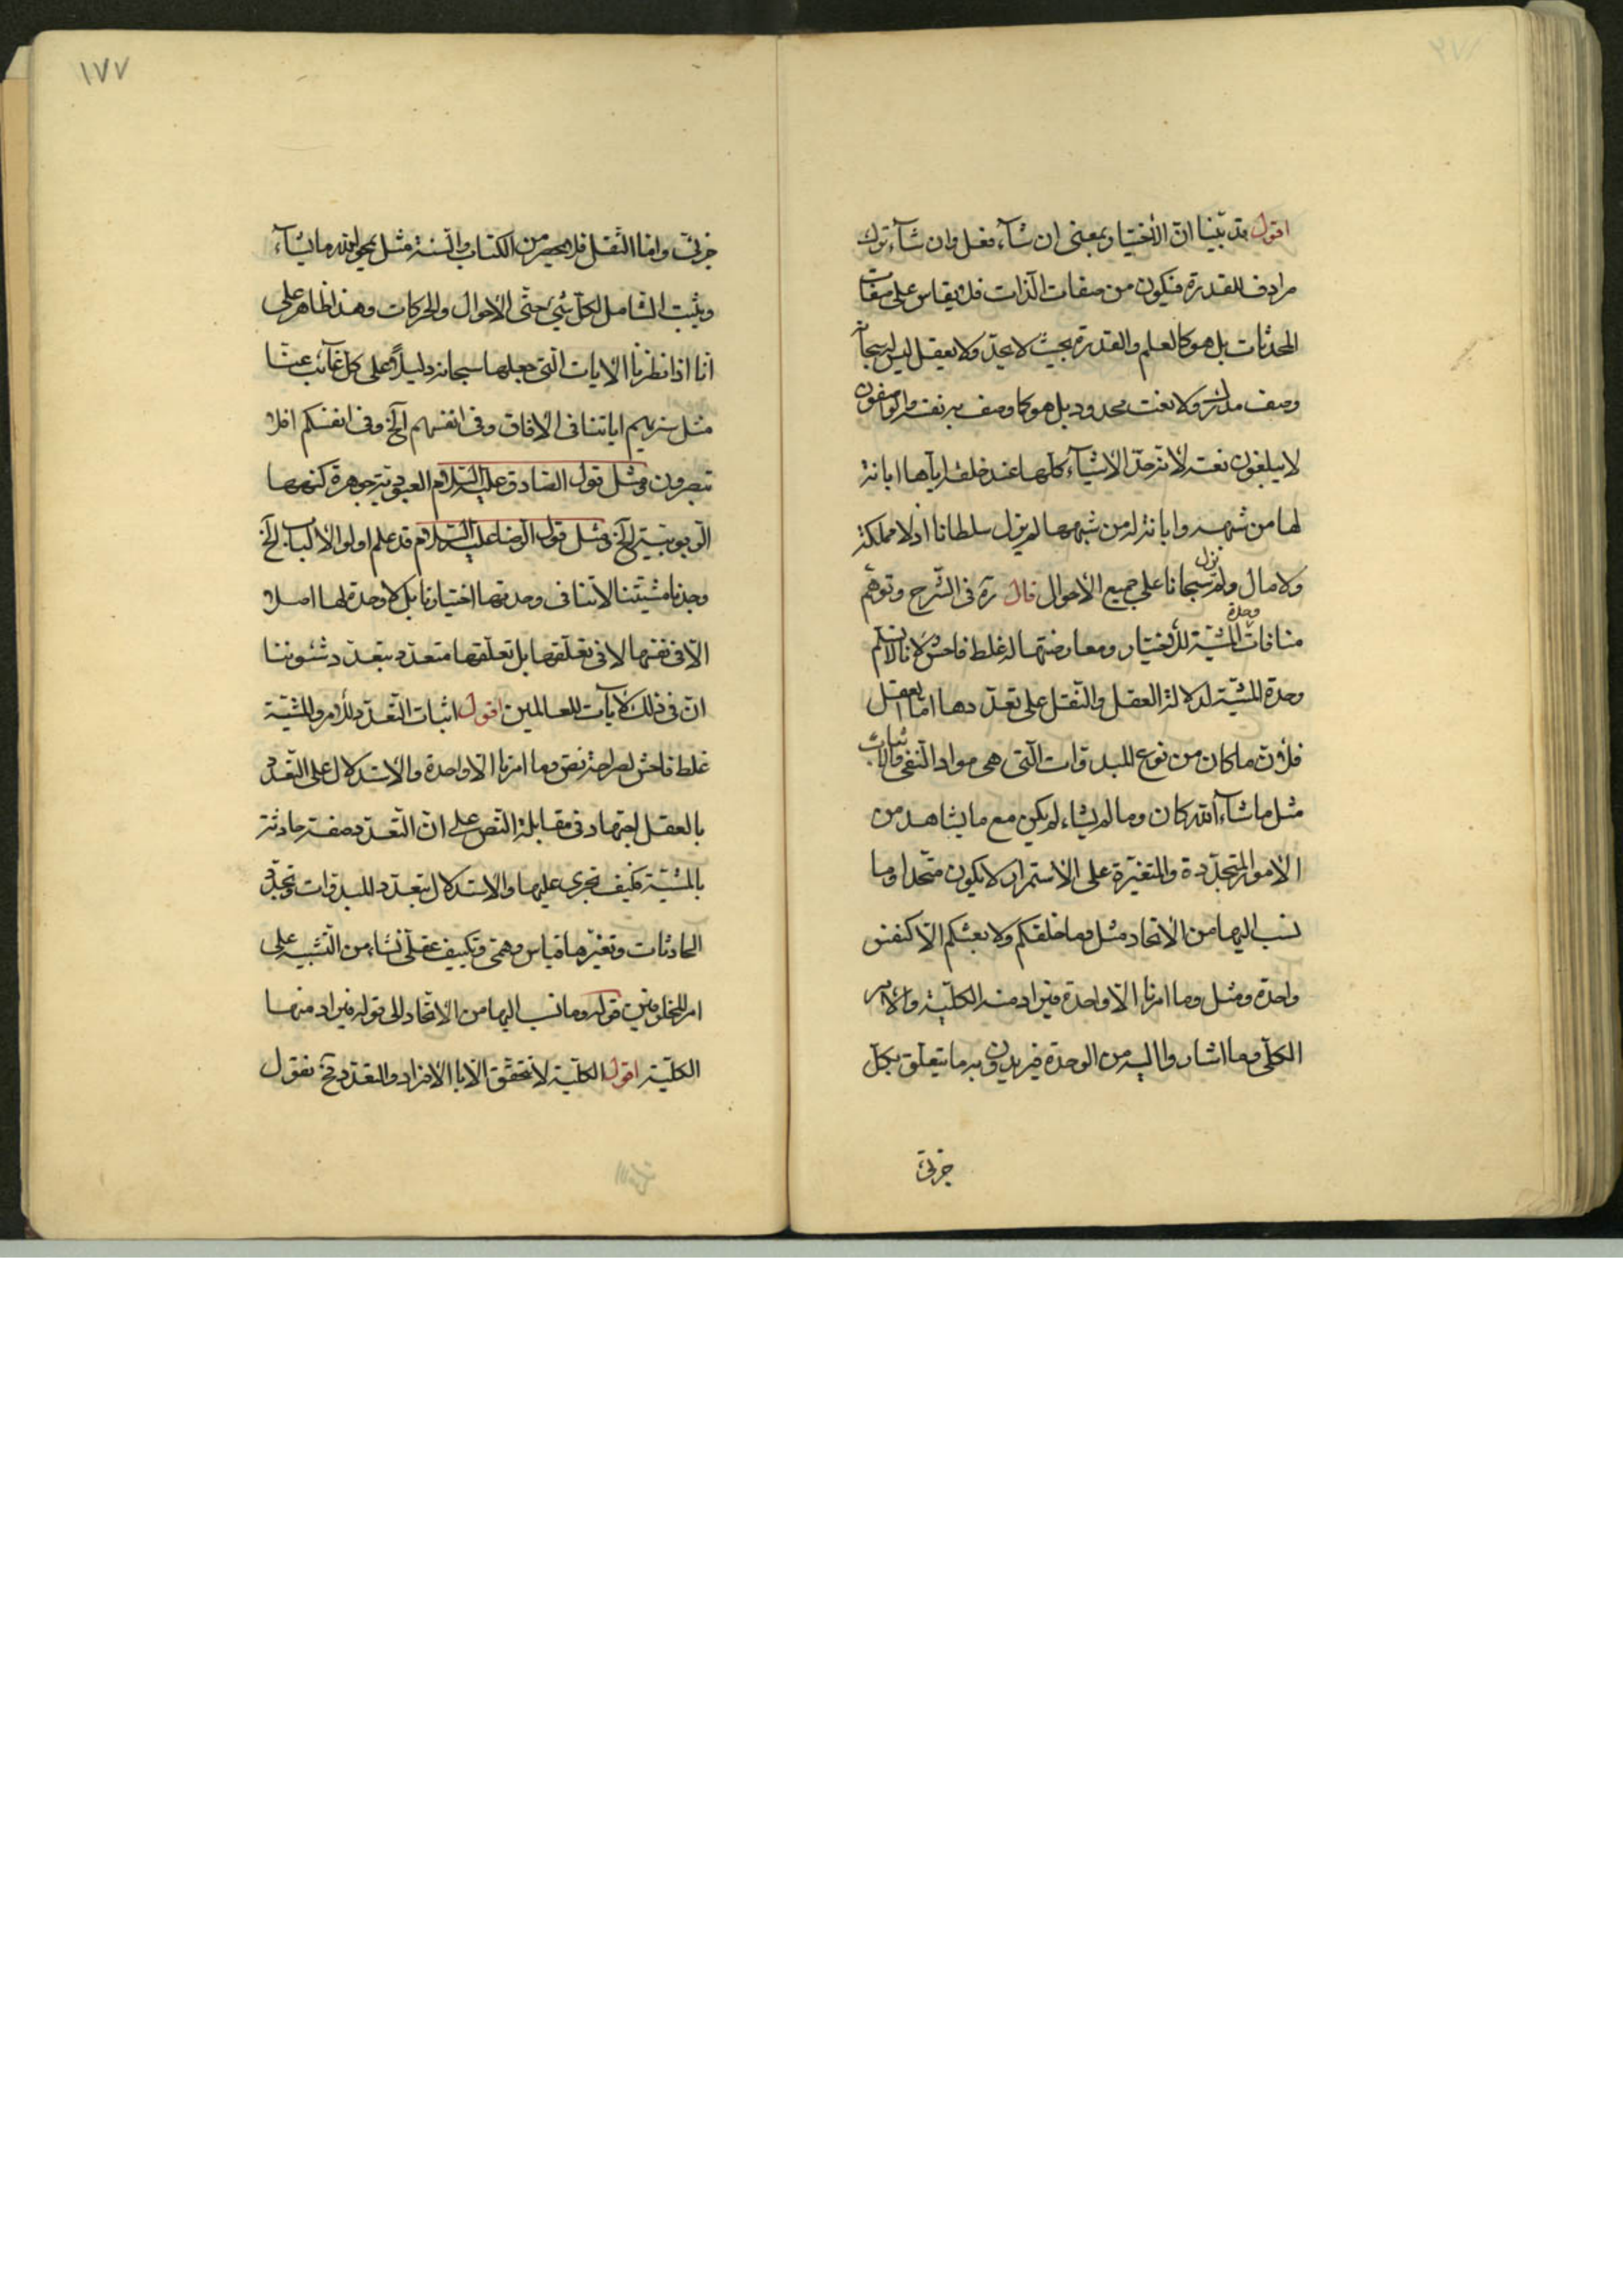 اقول قد بيّنا انّ الاختيار بمعنى ان شآء فعل وان شآء ترك
مرادف للقدرة فيكون من صفات الذات فلا يقاس على صفات
المحدثات بل هو كالعلم والقدرة بحيث لا يحدّ ولا يعقل ليس له سبحانه
وصف مدرك ولا نعت محدود بل هو كما وصف به نفسه والواصفون
لا يبلغون نعته لانه حدّ الاشيآء كلّها عند خلقه اياها ابانة
لها من شبهه وابانة له من شبهها لم يزل سلطانا اذ لا مملكة
ولا مال ولم يزل سبحانا على جميع الاحوال قال ره فى الشرح وتوهّم
منافات وحدة المشيّة للاختيار ومعارضتها له غلط فاحش لانا لا نسلم
وحدة المشيّة لدلالة العقل والنقل على تعدّدها امّا العقل
فلأن ما كان من نوع للبدوات التى هى مواد النفى والاثبات
مثل ما شآء الله كان وما لم يشاء لم يكن مع ما يشاهد من
الامور المتجدّدة والمتغيّرة على الاستمرار لا يكون متّحدا وما
نسب اليها من الاتحاد مثل وما خلقكم ولا بعثكم الّا كنفس
واحدة ومثل وما امرنا الّا واحدة فيراد منه الكليّة والامر
الكلّى وما اشاروا اليه من الوحدة فيريدون به ما يتعلّق بكلّ
جزئى
١٧٧
جزئى وامّا النقل فلا يحصر من الكتاب والسنة مثل يمحو الله ما يشآء
ويثبت الشامل لكل شىء حتّى الاحوال والحركات وهذا ظاهر على
انّا اذا نظرنا الايات الّتى جعلها سبحانه دليلاً على كل غآئب عنّا
مثل سنريهم اياتنا فى الافاق وفى انفسهم الخ وفى انفسكم افلا
تبصرون ومثل قول الصادق عليه السلام العبوديّة جوهرة كنهها
الربوبيّة الخ ومثل قول الرضا عليه السلام قد علم اولوا الالباب الخ
وجدنا مشيّتنا لا تنافى وحدتها اختيارنا بل لا وحدة لها اصلا
الّا فى نفسها لا فى تعلّقها بل تعلّقها متعدّد بتعدّد شئوننا
انّ فى ذلك لآيات للعالمين اقول اثبات التعدّد للامر والمشيّة
غلط فاحش لصراحة نصّ وما امرنا الّا واحدة والاستدلال على التعدّد
بالعقل اجتهاد فى مقابلة النصّ على انّ التعدّد صفة حادثة
بالمشيّة فكيف تجرى عليها والاستدلال بتعدّد للبدوات وتجدّد
الحادثات وتغيّرها قياس وهمىّ وتكييف عقلىّ نشاء من التشبيه على
امر المخلوقين قوله وما نسب اليها من الاتحاد الى قوله فيراد منها
الكليّة اقول الكليّة لا تتحقق الّا بالافراد والتعدّد فح نقول